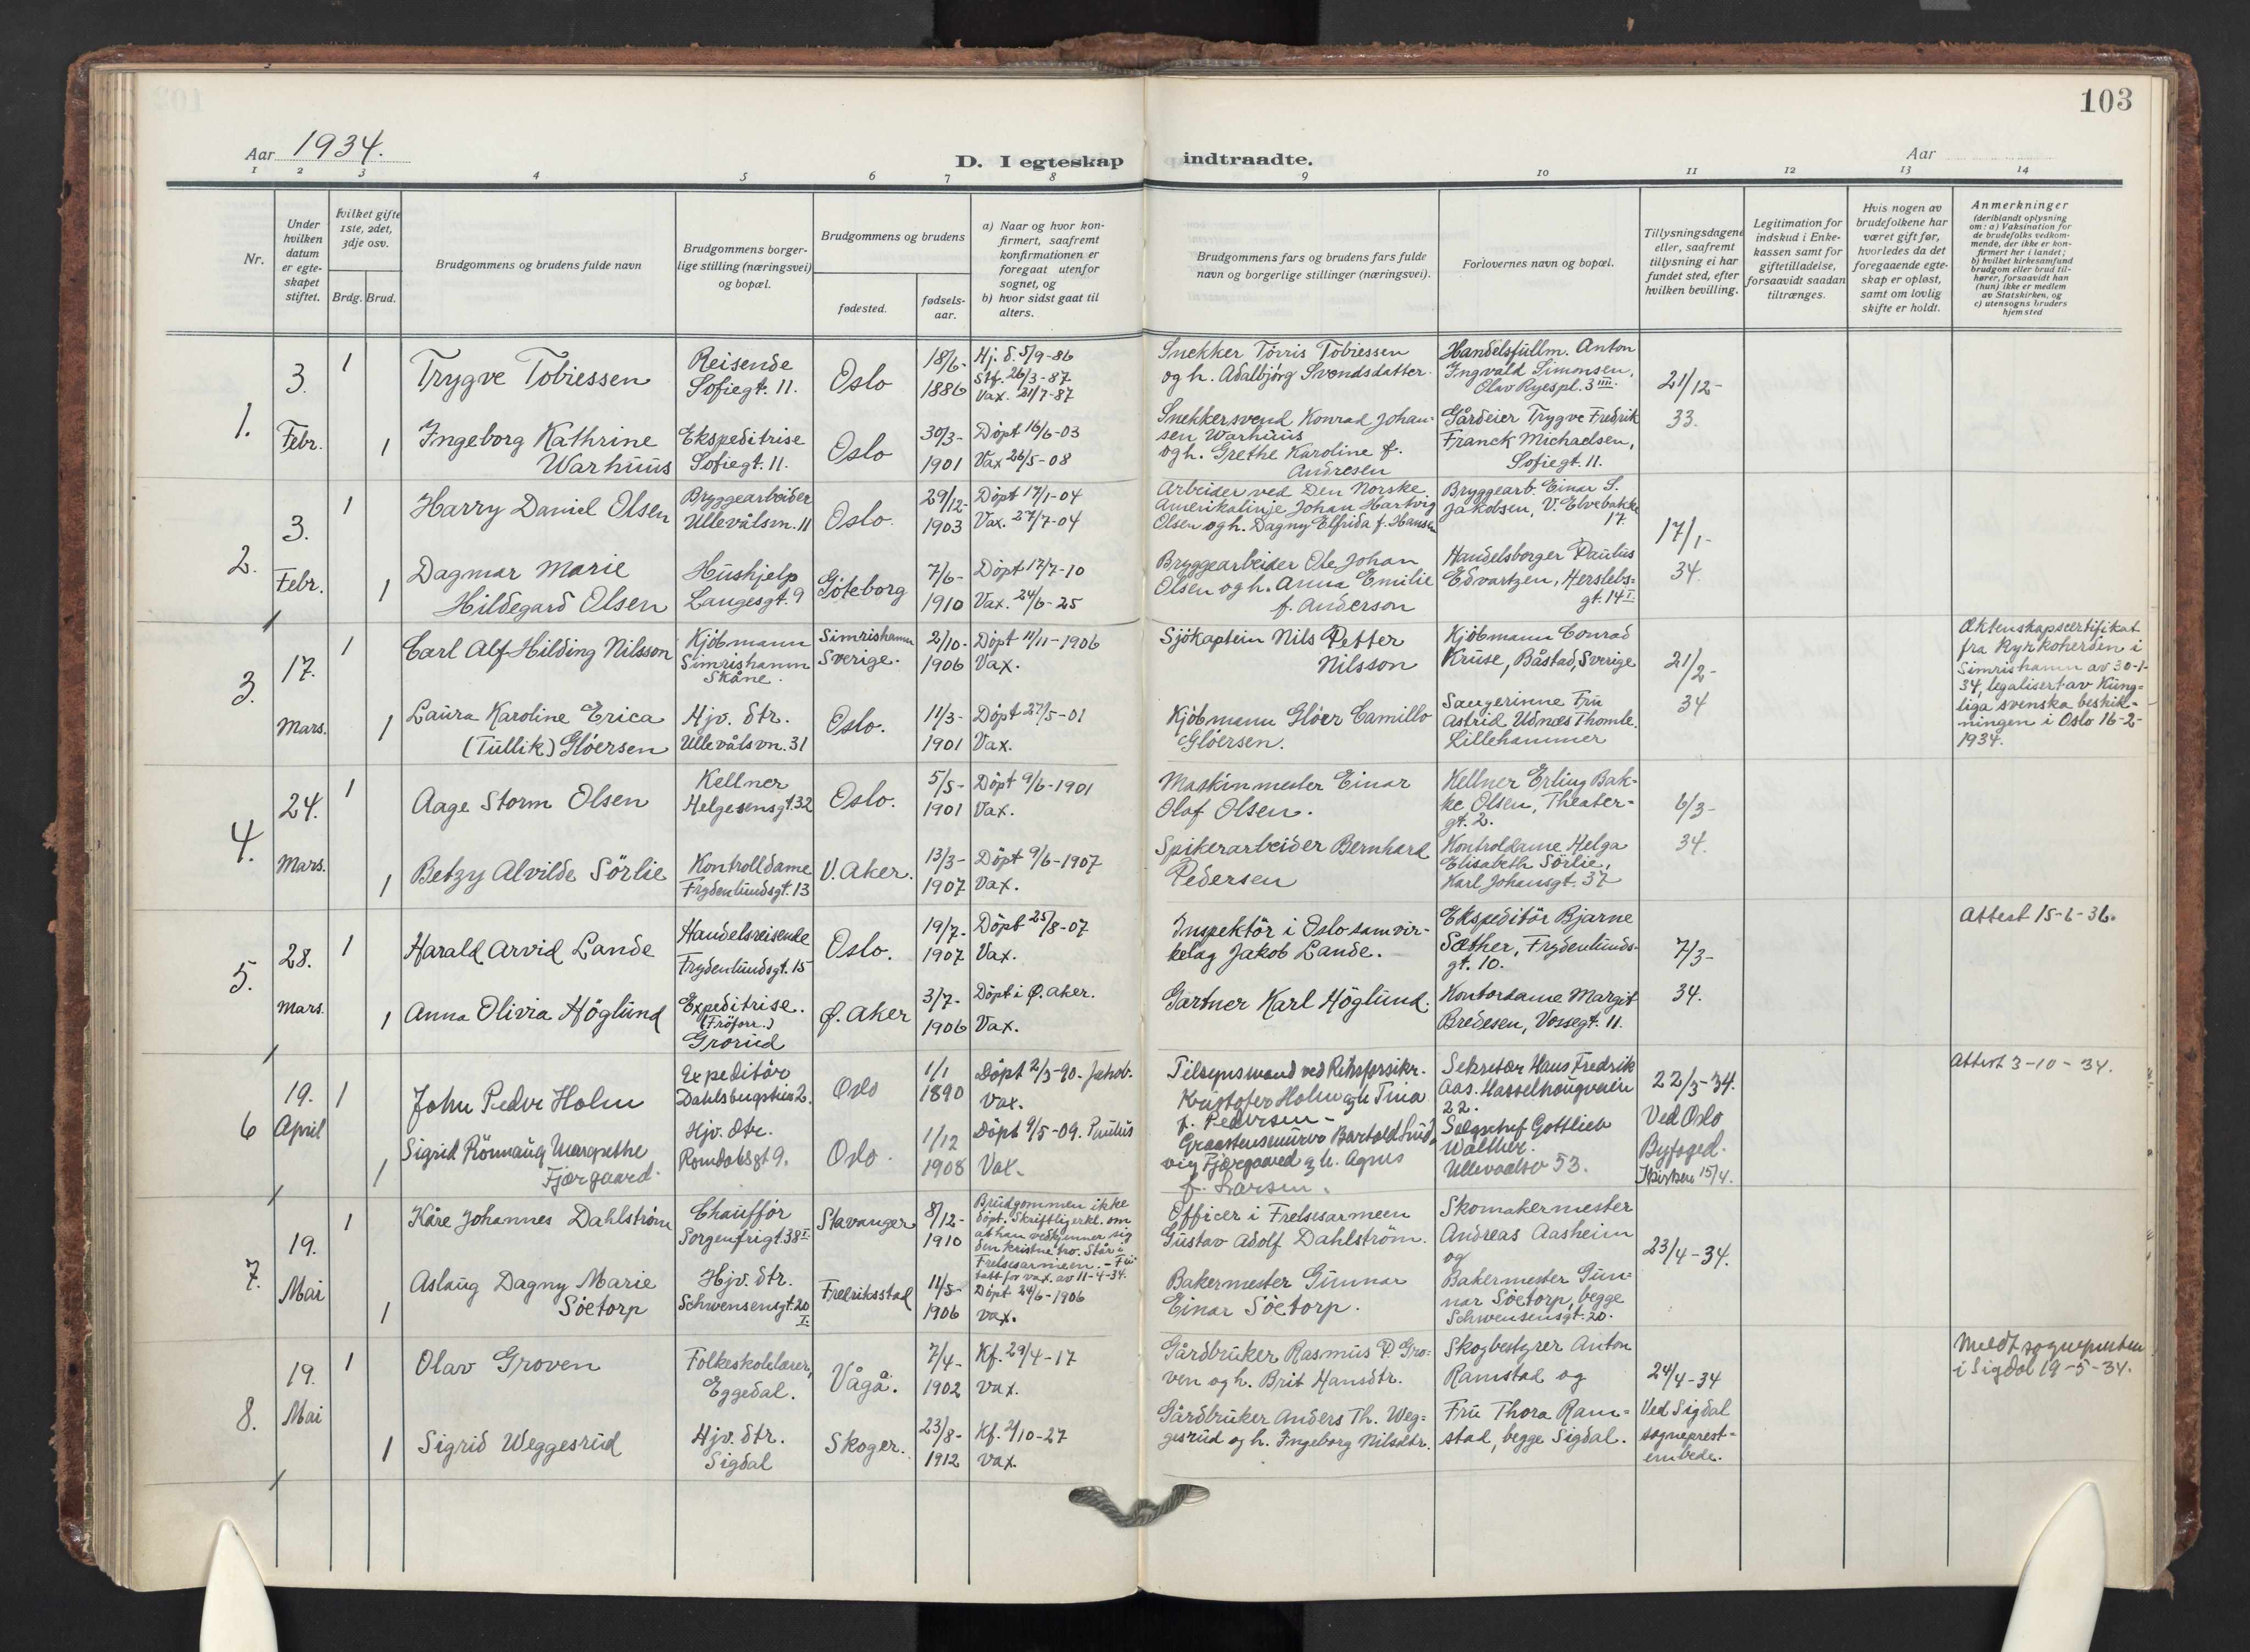 103
Aar 1934.
D. I egteskap indtraadte.
Aar
1 2 3 4 5 6 7 8 9 10 11 12 13 14
Nr.
Under
hvilken
datum
er egte-
skapet
stiftet.
hvilket gifte
1ste, 2det,
3dje osv.
Brdg. Brud.
Brudgommens og brudens fulde navn
Brudgommens borger-
lige stilling (næringsvei)
og bopæl.
Brudgommens og brudens
fødested.
fødsels-
aar.
a) Naar og hvor kon-
firmert, saafremt
konfirmationen er
foregaat utenfor
sognet, og
b) hvor sidst gaat til
alters.
Brudgommens fars og brudens fars fulde
navn og borgerlige stillinger (næringsvei).
Forlovernes navn og bopæl.
Tillysningsdagene
eller, saafremt
tillysning ei har
fundet sted, efter
hvilken bevilling.
Legitimation for
indskud i Enke-
kassen samt for
giftetilladelse,
forsaavidt saadan
tiltrænges.
Hvis nogen av
brudefolkene har
været gift før,
hvorledes da det
foregaaende egte-
skap er opløst,
samt om lovlig
skifte er holdt.
Anmerkninger
(deriblandt oplysning
om: a) Vaksination for
de brudefolks vedkom-
mende, der ikke er kon-
firmert her i landet;
b) hvilket kirkesamfund
brudgom eller brud til-
hører, forsaavidt han
(hun) ikke er medlem
av Statskirken, og
c) utensogns bruders
hjemsted
1.
3.
Febr.
1
Trygve Tobiessen
Reisende
Sofiegt. 11.
Oslo
18/6-
1886
Hj. d. 5/9-86
Stf. 26/3-87
Vax. 21/7-87
Snekker Törris Tobiessen
og h. Adalbjörg Svendsdatter.
Handelsfullm. Anton
Ingvald Simonsen,
Olav Ryespl. 3 IIII.
21/12-
33.
1
Ingeborg Kathrine
Warhuus
Ekspeditrise
Sofiegt. 11.
Oslo
30/3-
1901
Döpt 16/6-03
Vax 26/5-08
Snekkersvend Konrad Johan-
sen Warhuus
og h. Grethe Karoline f.
Andresen
Gårdeier Trygve Fredrik
Franck Michaelsen,
Sofiegt. 11.
2.
3.
Febr.
1
Harry Daniel Olsen
Bryggearbeider
Ullevålsvn. 11
Oslo.
29/12-
1903
Döpt 17/1-04
Vax. 27/7-04
Arbeider ved Den Norske
Amerikalinje Johan Hartvig
Olsen og h. Dagny Elfrida f. Hansen
Bryggearb. Einar S.
Jakobsen, V. Elvebakke
17.
17/1-
34.
1
Dagmar Marie
Hildegard Olsen
Hushjelp
Langesgt. 9
Göteborg
7/6-
1910
Döpt 17/7-10
Vax. 24/6-25
Bryggearbeider Ole Johan
Olsen og h. Anna Emilie
f. Anderson
Handelsborger Paulus
Edvartzen, Herslebs-
gt. 14 I.
3.
17.
Mars.
1
Carl Alf Hilding Nilsson
Kjöbmann
Simrishamn
Skåne.
Simrishamn
Sverige.
2/10-
1906
Döpt 11/11-1906
Vax.
Sjökaptein Nils Petter
Nilsson
Kjöbmann Conrad
Kruse, Båstad, Sverige
21/2-
34
Äktenskapscertifikat
fra Kyrkoherden i
Simrishamn av 30-1-
34, legalisert av Kung-
liga svenska beskik-
ningen i Oslo 16-2-
1934.
1
Laura Karoline Erica
(Tullik) Glöersen
Hjv. dtr.
Ullevålsvn. 31
Oslo.
11/3-
1901
Döpt 27/5-01
Vax.
Kjöbmann Glöer Camillo
Glöersen.
Sangerinne Fru
Astrid Udnæs Thomle.
Lillehammer
4.
24.
Mars.
1
Aage Storm Olsen
Kellner
Helgesensgt. 32
Oslo.
5/5-
1901
Döpt 9/6-1901
Vax.
Maskinmester Einar
Olaf Olsen.
Kellner Erling Bak-
ke Olsen, Theater-
gt. 2.
6/3-
34.
1
Betzy Alvilde Sörlie
Kontrolldame
Frydenlundsgt. 13
V. Aker.
13/3-
1907
Döpt 9/6-1907
Vax.
Spikerarbeider Bernhard
Pedersen
Kontroldame Helga
Elisabeth Sörlie,
Karl Johansgt. 37
5.
28.
Mars.
1
Harald Arvid Lande
Handelsreisende
Frydenlundsgt. 15
Oslo.
19/7-
1907
Döpt 25/8-07
Vax.
Inspektör i Oslo samvir-
kelag Jakob Lande.
Ekspeditör Bjarne
Sæther, Frydenlunds-
gt. 10.
7/3-
34.
Attest 15-6-36.
1
Anna Olivia Höglund
Expeditrise.
(Fröforr.)
Grorud
Ø. Aker
3/7-
1906
Döpt i Ø. Aker.
Vax.
Gartner Karl Höglund.
Kontordame Margit
Bredesen, Vossegt. 11.
6
19.
April
1
John Peder Holm
Expeditör
Dahlsbergstien 2.
Oslo
1/1
1890
Döpt 2/3-90. Jakob.
Vax.
Tilsynsmand ved Riksforsikr.
Kristofer Holm og h. Tina
f. Pedersen -
Sekretær Hans Fredrik
Aas. Hasselhaugveien
22.
22/3-34.
Ved Oslo
Byfoged.
Kirken 15/4.
Attest 3-10-34.
1
Sigrid Rönnaug Margrethe
Fjærgaard.
Hjv. dtr.
Romdalsgt 9.
Oslo.
1/12
1908
Döpt 9/5-09. Paulus
Vax.
Graastensmurer Bartold Lud-
vig Fjærgaard og h. Agnes
f. Larsen.
Salgschef Gottlieb
Walther.
Ullevaalsv 53.
7.
19.
Mai
1
Kåre Johannes Dahlström
Chauffför
Sorgenfrigt. 38 I
Stavanger
8/12-
1910
Brudgommen ikke
döpt. Skriftlig erkl. om
at han vedkjenner sig
den kristne tro. Står i
Frelsesarmeen. - Fri
tatt for vax. av 11-4-34.
Officer i Frelsesarmeen
Gustav Adolf Dahlström.
Skomakermester
Andreas Aasheim
og
23/4-34.
1
Aslaug Dagny Marie
Söetorp
Hjv. dtr.
Schwensensgt. 20
I.
Fredriksstad
11/5-
1906
Döpt 24/6-1906
vax.
Bakermester Gunnar
Einar Söetorp.
Bakermester Gun-
nar Söetorp, begge
Schwensensgt. 20.
8.
19.
Mai
1
Olav Groven
Folkeskolelærer,
Eggedal.
Vågå.
7/4-
1902
Kf. 29/4-17
vax.
Gårdbruker Rasmus P. Gro-
ven og h. Brit Hansdtr.
Skogbestyrer Anton
Ramstad og
24/4-34
Ved Sigdal
sogneprest-
embede.
Meldt sognepresten
i Sigdal 19-5-34.
1
Sigrid Weggesrud
Hjv. dtr.
Sigdal
Skoger.
23/8-
1912
Kf. 2/10-27
vax.
Gårdbruker Anders Th. Weg-
gesrud og h. Ingeborg Nilsdtr.
Fru Thora Ram-
stad, begge Sigdal.